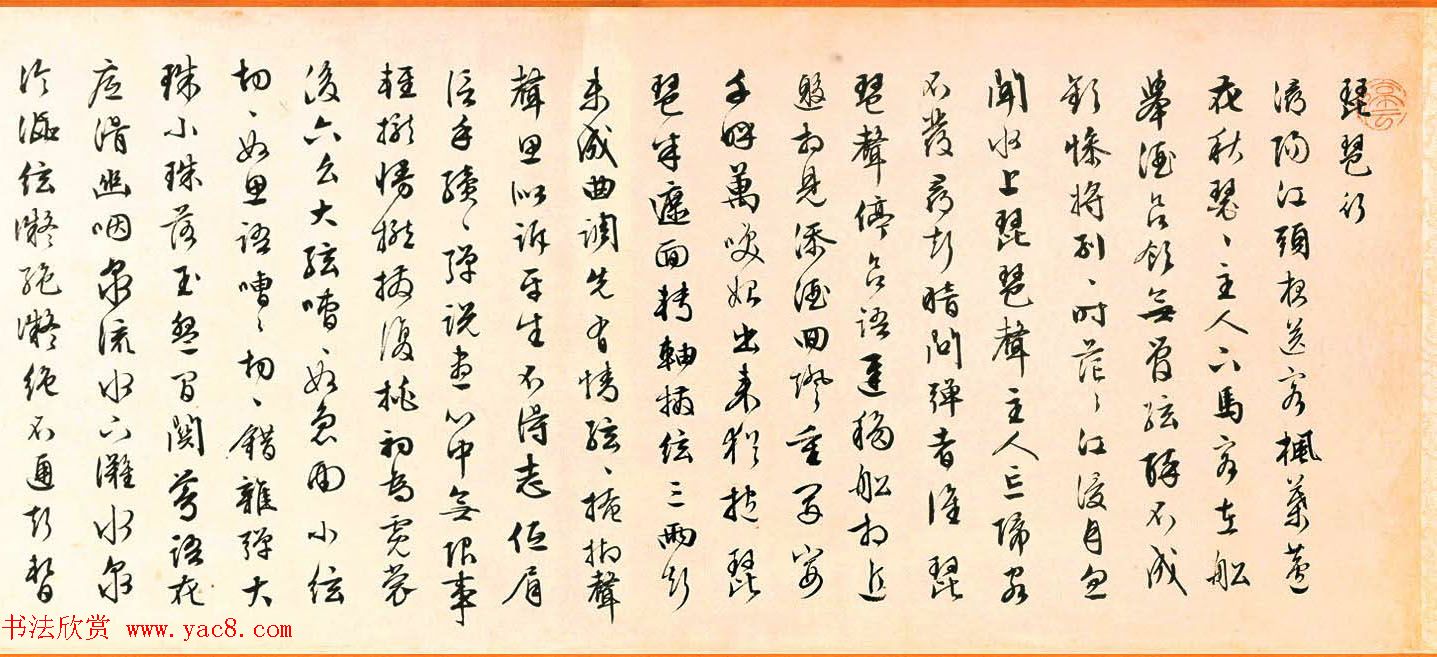 琵琶行
潯陽江頭夜送客楓葉蘆
花秋瑟〻主人下馬客在船
舉酒欲飲無管絃醉不成
歡慘將別〻時茫〻江浸月忽
聞水上琵琶聲主人忘歸客
不發尋聲暗問彈者誰琵
琶聲停欲語遲移船相近
邀相見添酒回燈重開宴
千呼萬喚始出來猶抱琵
琶半遮面轉軸撥絃三兩聲
未成曲調先有情絃〻掩抑聲
聲思似訴平生不得志低眉
信手續〻彈說盡心中無限事
輕攏慢撚撥復挑初為霓裳
後六么大絃嘈〻如急雨小絃
切〻如思語嘈〻切〻錯雜彈大
珠小珠落玉盤間關鶯語花
底滑幽咽泉流水下灘水泉
冷澀絃凝絕凝絕不通聲暫
书法欣赏 www.yac8.com